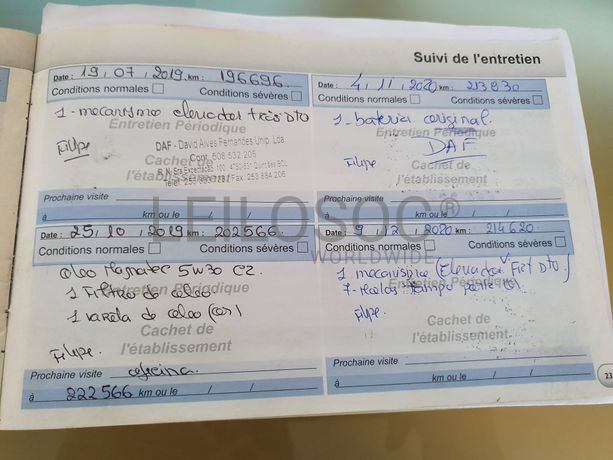 Suivi de l'entretien
Date : 19, 07, 2019 km : 196696
Conditions normales Conditions sévères
1 - mecanismo elevador trás DTO
Entretien Périodique
Filipe
DAF - David Alves Fernandes Unip. Lda
Cachet de
l'établissement
Prochaine visite
à km ou le / /
Date : 4, 11, 2020 km : 213830
Conditions normales Conditions sévères
1 - bateria original
Entretien Périodique
DAF
Filipe
Cachet de
l'établissement
Prochaine visite
à km ou le / /
Date : 25, 10, 2019 km : 202566
Conditions normales Conditions sévères
oleo Magnatec 5W30 C2
1 Filtro de oleo
Entretien Périodique
1 vareta de oleo
Cachet de
l'établissement
Filipe
Prochaine visite oficina
à 222566 km ou le / /
Date : 9, 12, 2020 km : 214620
Conditions normales Conditions sévères
1 - mecanismo (Elevador DTO)
Entretien Périodique
Filipe
Cachet de
l'établissement
Prochaine visite
à km ou le / /
23
LEILOSOC®
WORLDWIDE